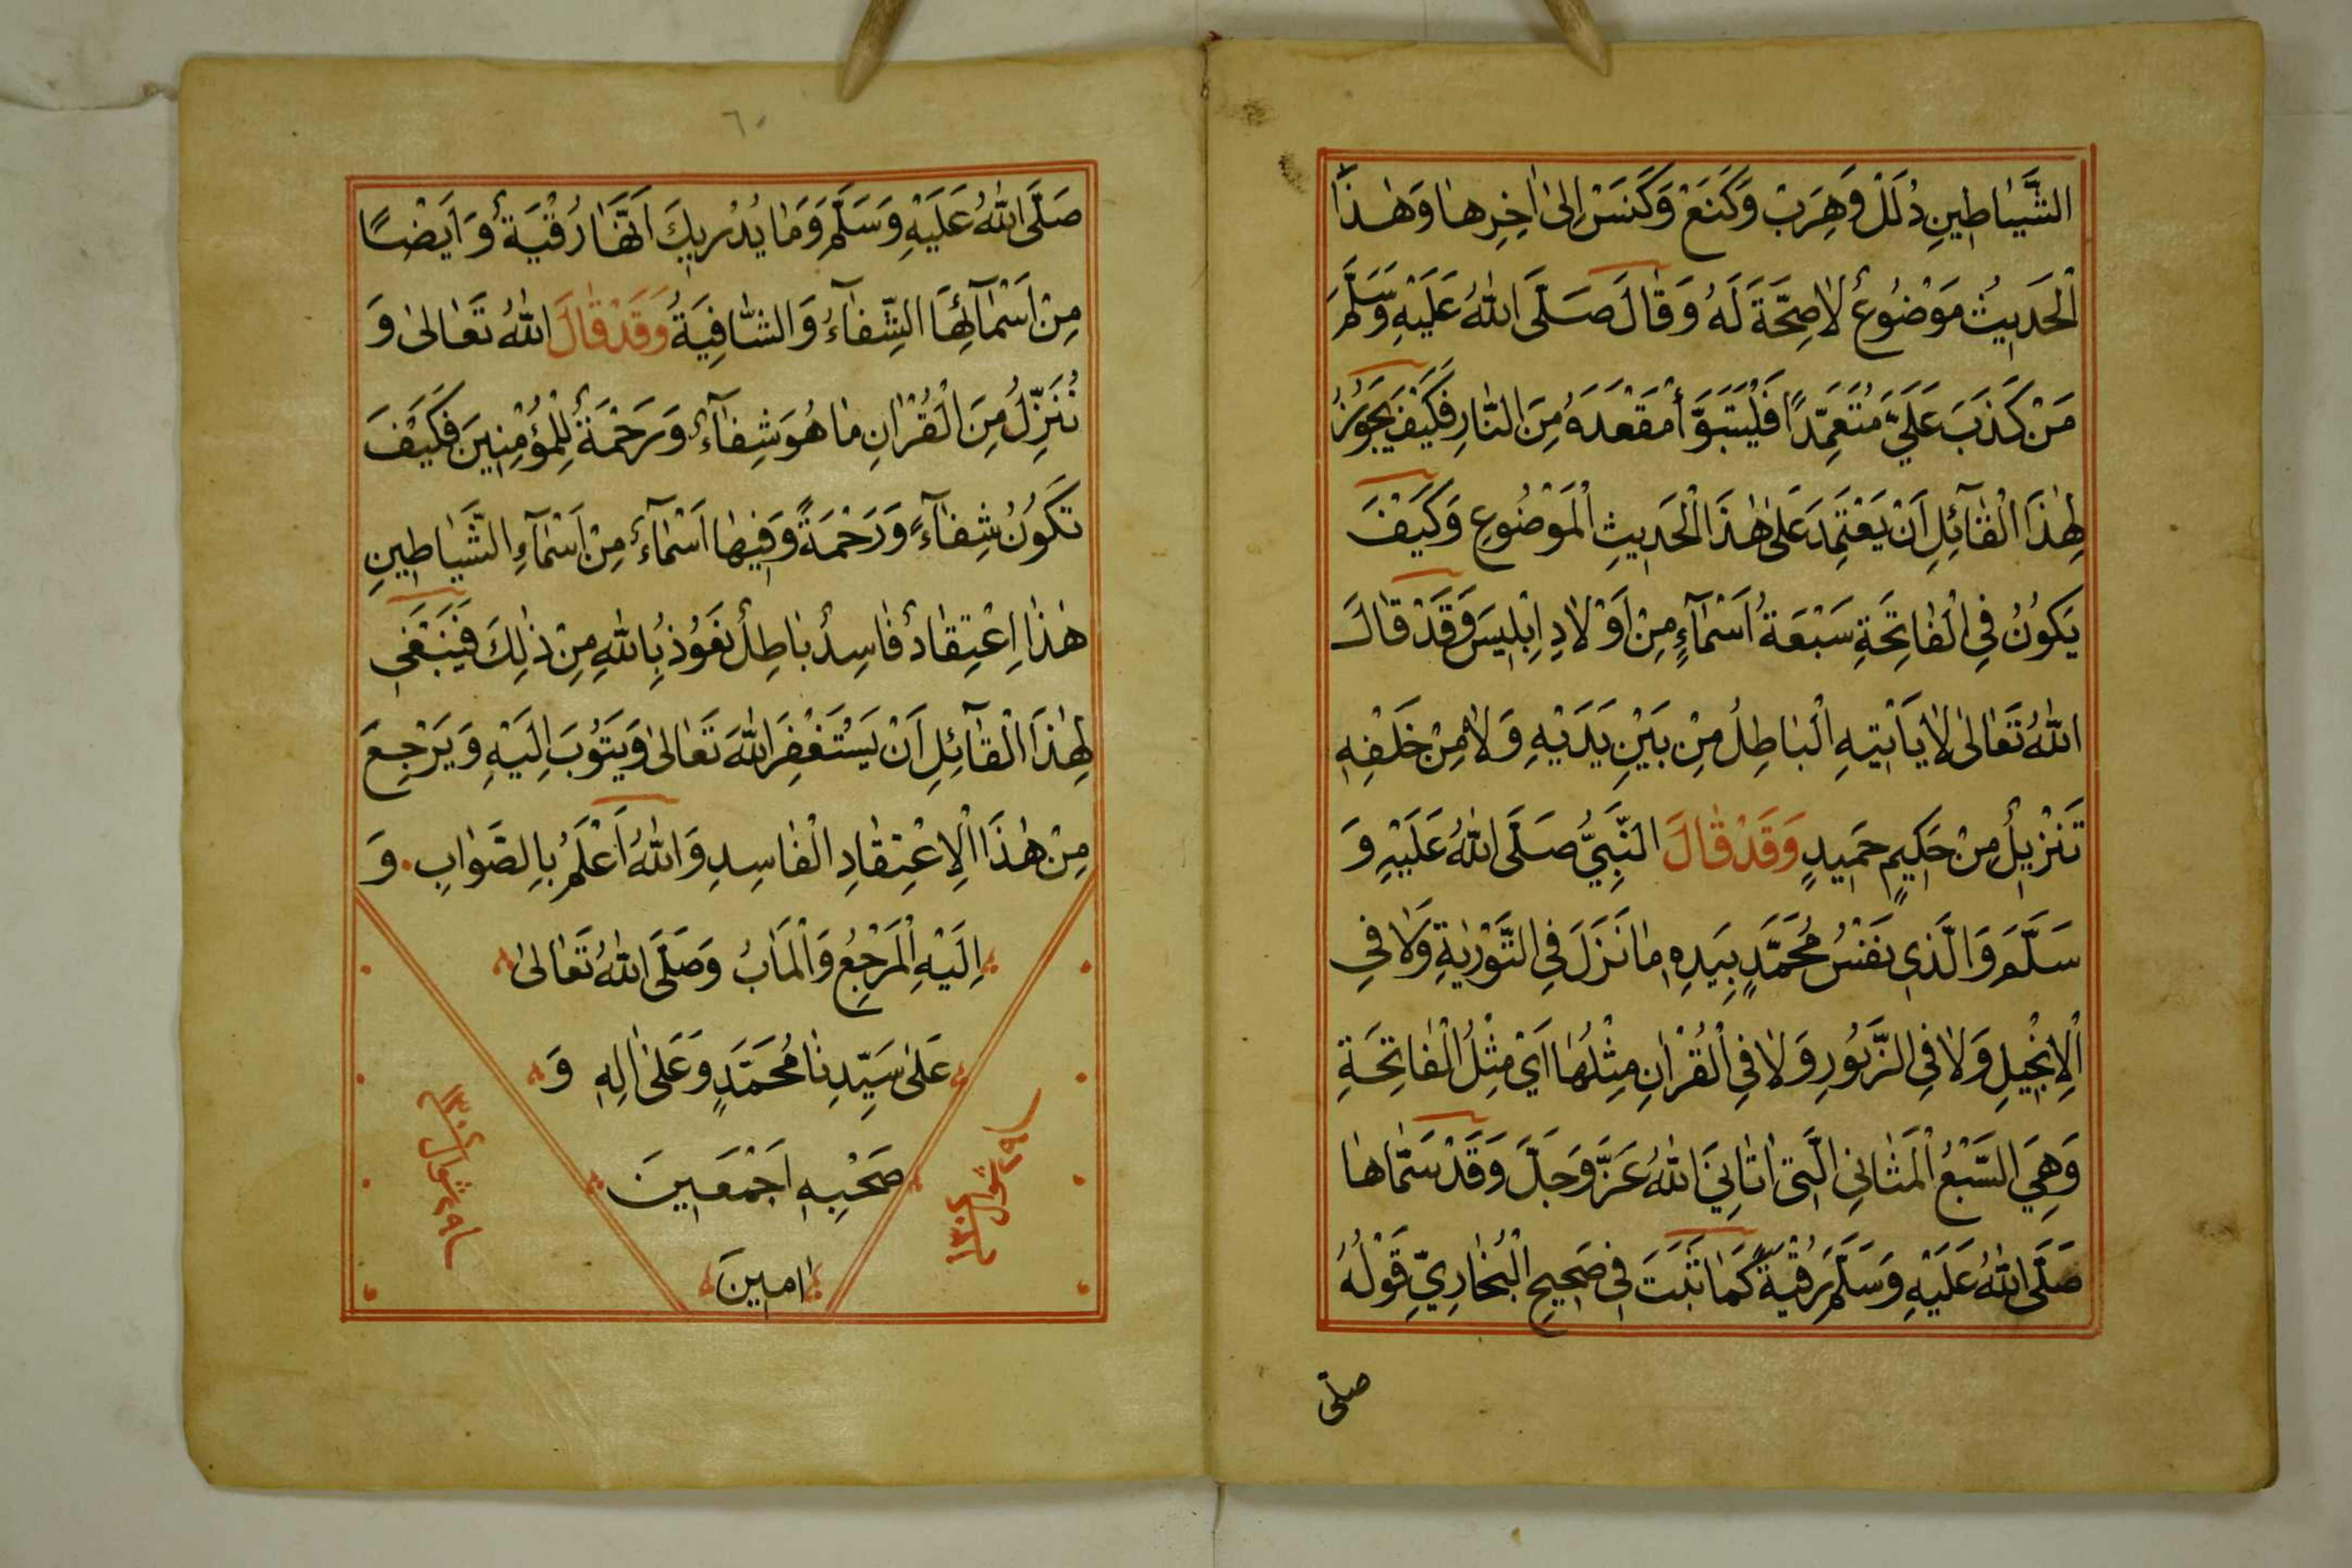 الشَّيٰاطِينِ دُلَلْ وَهِرَبْ وَكَنَعْ وَكَنَسْ اِلىٰ اٰخِرِهٰا وَهٰذَا
الْحَدِيثُ مَوْضُوعٌ لاٰصِحَّةَ لَهُ وَقٰالَ صَلَّى اللّٰهُ عَلَيْهِ وَسَلَّمَ
مَنْ كَذَبَ عَلَيَّ مُتَعَمِّدًا فَلْيَتَبَوَّأْ مَقْعَدَهُ مِنَ النّٰارِ فَكَيْفَ يَجُوزُ
لِهٰذَا الْقٰآئِلِ اَنْ يَعْتَمِدَ عَلىٰ هٰذَا الْحَدِيثِ الْمَوْضُوعِ وَكَيْفَ
يَكُونُ فِي الْفٰاتِحَةِ سَبْعَةُ اَسْمٰآءٍ مِنْ اَوْلاٰدِ اِبْلِيسَ وَقَدْ قٰالَ
اللّٰهُ تَعٰالىٰ لاٰ يَاْتِيهِ الْبٰاطِلُ مِنْ بَيْنِ يَدَيْهِ وَلاٰ مِنْ خَلْفِهِ
تَنْزِيلٌ مِنْ حَكِيمٍ حَمِيدٍ وَقَدْ قٰالَ النَّبِيُّ صَلَّى اللّٰهُ عَلَيْهِ وَ
سَلَّمَ وَالَّذِي نَفْسُ مُحَمَّدٍ بِيَدِهِ مٰا نَزَلَ فِي التَّوْرٰيةِ وَلاٰ فِي
الْاِنْجِيلِ وَلاٰ فِي الزَّبُورِ وَلاٰ فِي الْقُرْاٰنِ مِثْلُهٰا اَيْ مِثْلُ الْفٰاتِحَةِ
وَهِيَ السَّبْعُ الْمَثٰانِي الَّتِي اٰتٰانِيَ اللّٰهُ عَزَّ وَجَلَّ وَقَدْ سَمّٰاهٰا
صَلَّى اللّٰهُ عَلَيْهِ وَسَلَّمَ رُقْيَةً كَمٰا ثَبَتَ فِي صَحِيحِ الْبُخٰارِيِّ قَوْلُهُ
صلّى
٦٠
صَلَّى اللّٰهُ عَلَيْهِ وَسَلَّمَ وَمٰا يُدْرِيكَ اَنَّهٰا رُقْيَةٌ وَاَيْضًا
مِنْ اَسْمٰآئِهَا الشِّفٰآءُ وَالشّٰافِيَةُ وَقَدْ قٰالَ اللّٰهُ تَعٰالىٰ وَ
نُنَزِّلُ مِنَ الْقُرْاٰنِ مٰا هُوَ شِفٰآءٌ وَرَحْمَةٌ لِلْمُؤْمِنِينَ فَكَيْفَ
تَكُونُ شِفٰآءً وَرَحْمَةً وَفِيهٰا اَسْمٰآءٌ مِنْ اَسْمٰآءِ الشَّيٰاطِينِ
هٰذَا اِعْتِقٰادٌ فٰاسِدٌ بٰاطِلٌ نَعُوذُ بِاللّٰهِ مِنْ ذٰلِكَ فَيَنْبَغِي
لِهٰذَا الْقٰآئِلِ اَنْ يَسْتَغْفِرَ اللّٰهَ تَعٰالىٰ وَيَتُوبَ اِلَيْهِ وَيَرْجِعَ
مِنْ هٰذَا الْاِعْتِقٰادِ الْفٰاسِدِ وَاللّٰهُ اَعْلَمُ بِالصَّوٰابِ وَ
اِلَيْهِ الْمَرْجِعُ وَالْمَاٰبُ وَصَلَّى اللّٰهُ تَعٰالىٰ
عَلىٰ سَيِّدِنٰا مُحَمَّدٍ وَعَلىٰ اٰلِهِ وَ
صَحْبِهِ اَجْمَعِينَ
اٰمِينَ
شوال
شوال